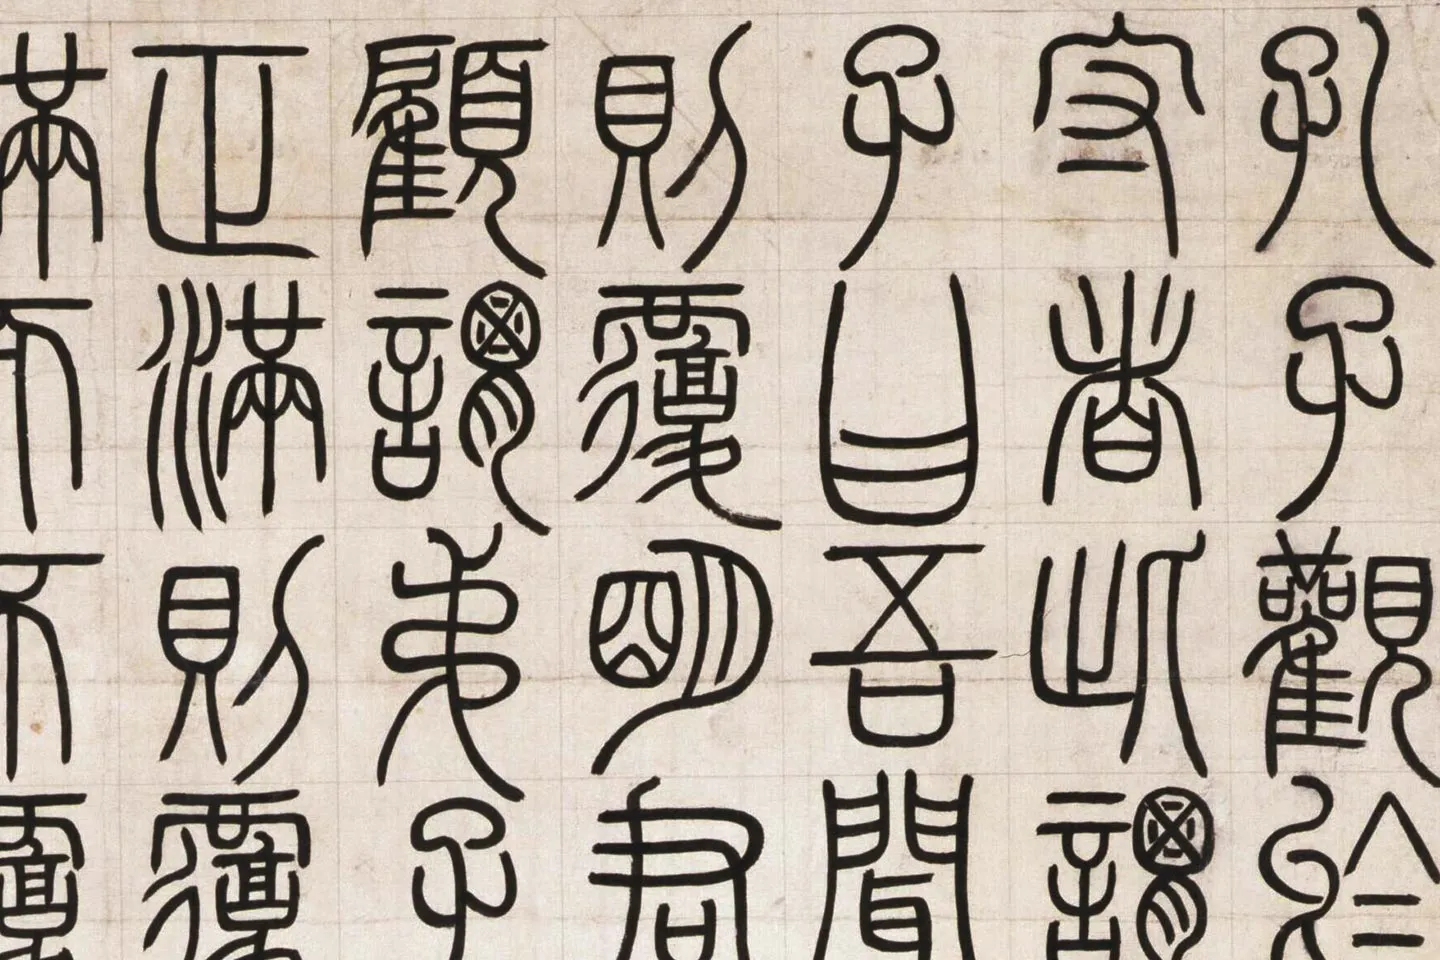 孔子觀於
守者此謂
子曰吾聞
則覆明君
顧謂弟子
正滿則覆
滿而不覆